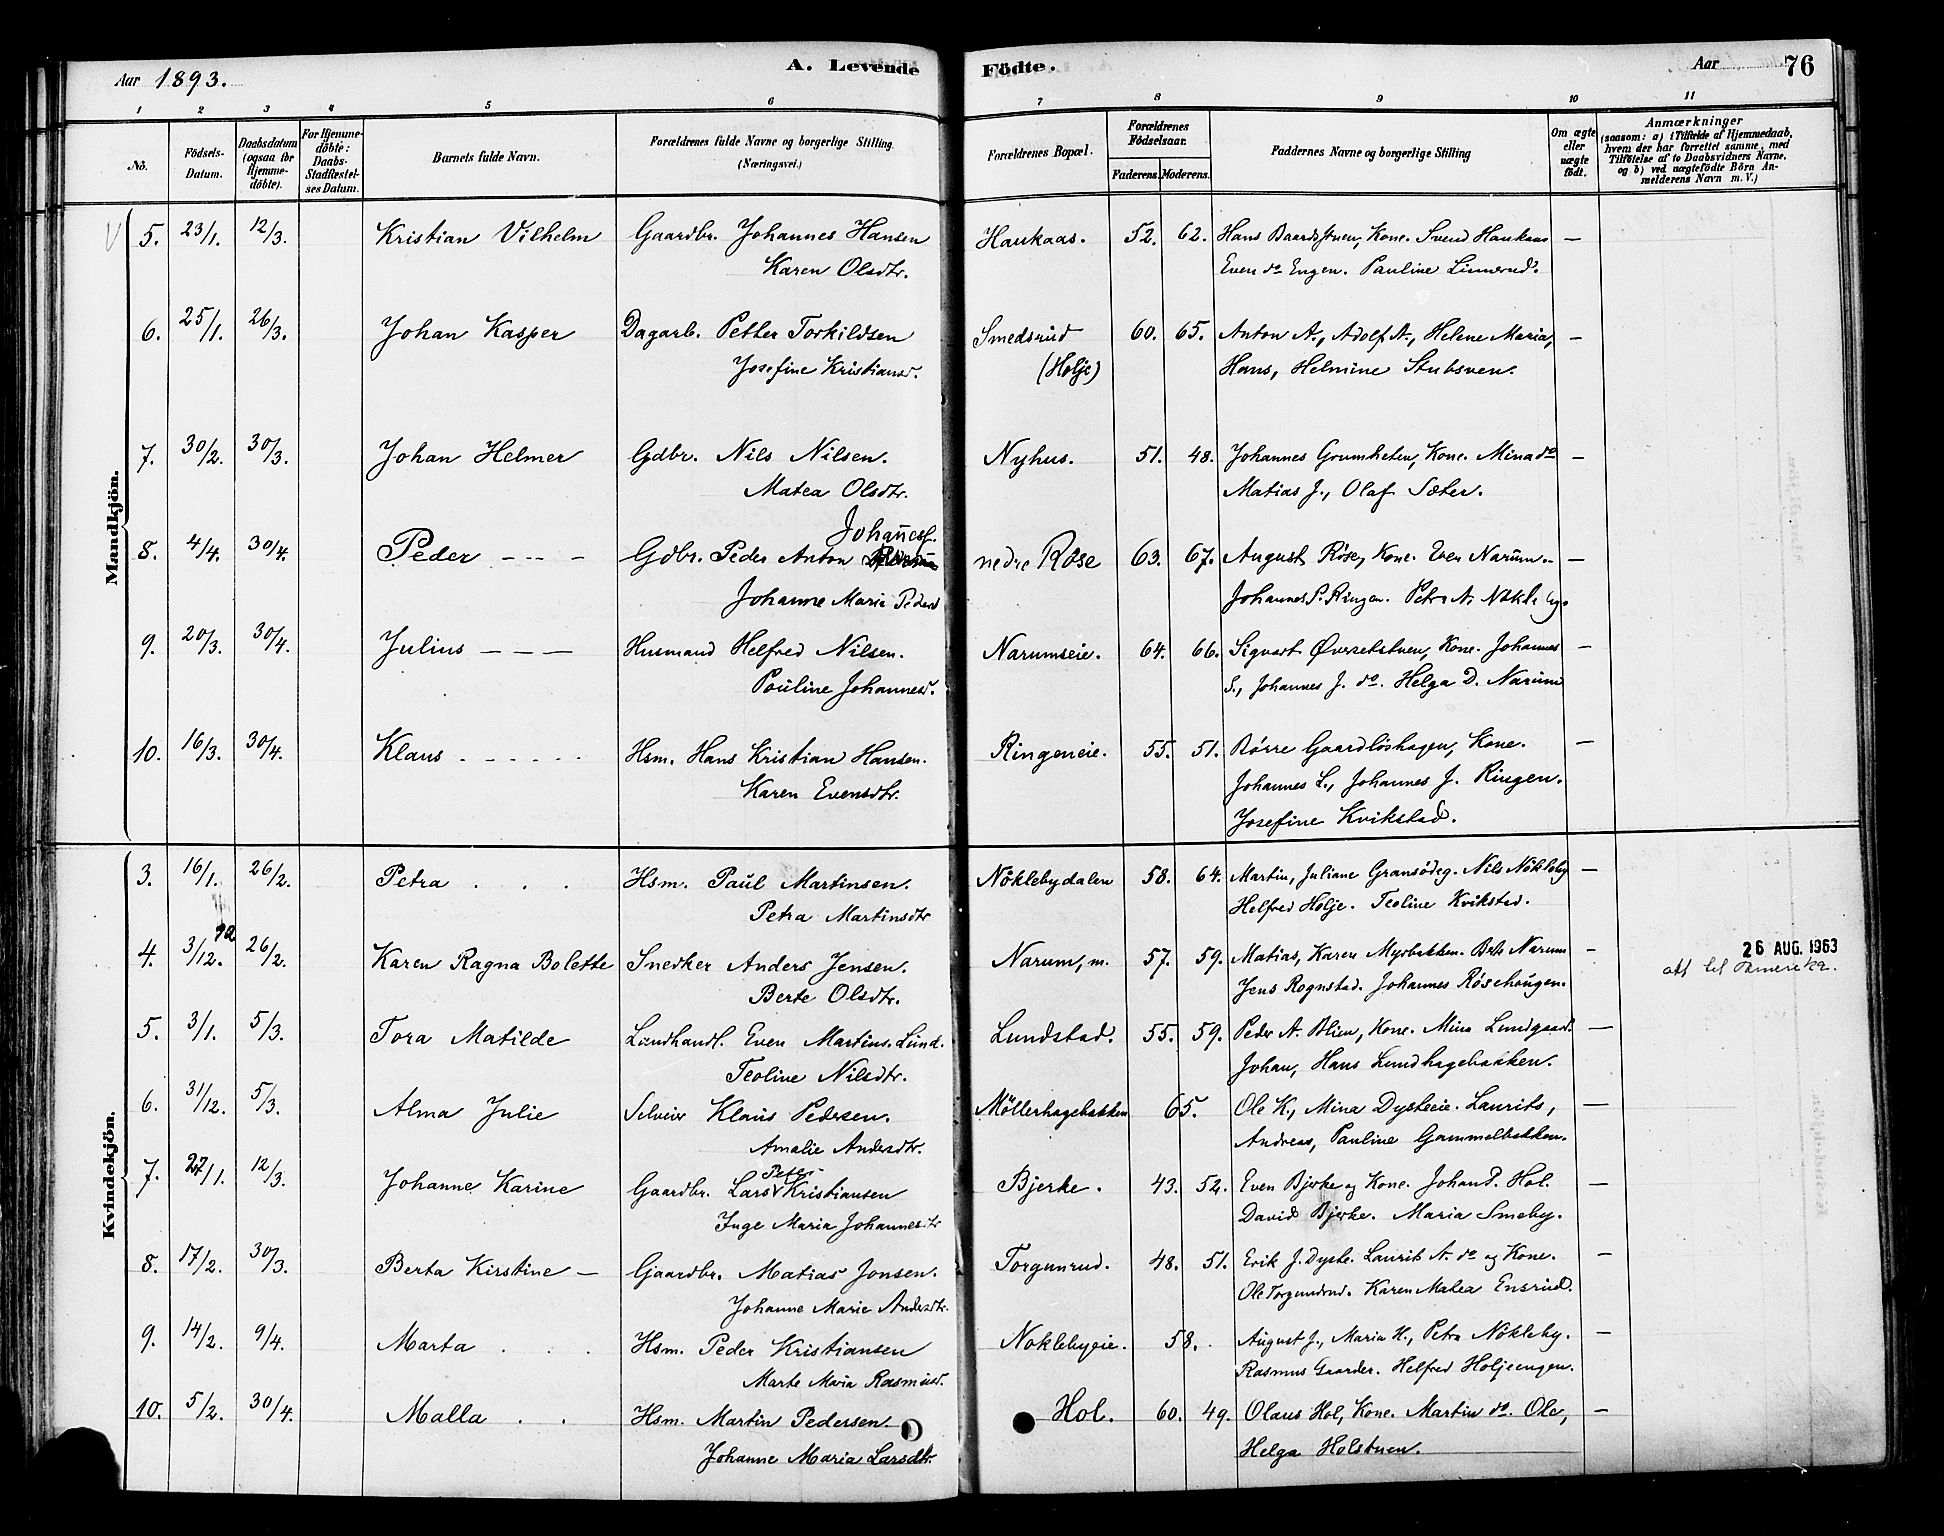 Aar 1893.
A. Levende Födte.
Aar 76
1 2 3 4 5 6 7 8 9 10 11
No.
Födsels-Datum.
Daabsdatum (ogsaa for Hjemme-döbte).
For Hjemme-döbte: Daabs-Stadfæstel-ses Datum.
Barnets fulde Navn.
Forældrenes fulde Navne og borgerlige Stilling (Næringsvei.)
Forældrenes Bopæl.
Forældrenes Födselsaar.
Faderens. Moderens.
Faddernes Navne og borgerlige Stilling
Om ægte eller uægte födt.
Anmærkninger
(saasom: a) i Tilfælde af Hjemmedaab,
hvem der har forrettet samme, med
Tilföielse af to Daabsvidners Navne,
og b) ved uægtefödte Börn An-
melderens Navn m. V.)
Mandkjön.
5. 23/1. 12/3. Kristian Vilhelm Gaardbr. Johannes Hansen Haukaas. 52. 62. Hans Baardstuen, Kone. Svend Haukaas —
Karen Olsdtr. Even do Engen. Pauline Linnerud.
6. 25/1. 26/3. Johan Kasper Dagarb. Petter Torkildsen Smedsrud 60. 65. Anton A., Adolf A., Helene Maria, —
Josefine Kristiansd. (Holje) Hans, Helmine Stubsven.
7. 30/2. 30/3. Johan Helmer Gdbr. Nils Nilsen. Nyhus. 51. 48. Johannes Grumheten, Kone. Mina do —
Matea Olsdtr. Matias J., Olaf Sæter.
Johannesf.
8. 4/4. 30/4. Peder — — — Gdbr. Peder Anton nedre Røse 63. 67. August Røse, Kone. Even Narum. —
Johanne Marie Pedersd Johannes P. Ringen. Petra N. Nøkleby.
9. 20/3. 30/4. Julius — — — Husmand Helfred Nilsen. Narumseie. 64. 66. Sigvart Øversetstuen, Kone. Johannes —
Pouline Johannesd. S., Johannes J. do. Helga D. Narum
10. 16/3. 30/4. Klaus . . . . . . Hsm. Hans Kristian Hansen. Ringeneie. 55. 51. Børre Gaardløshagen, Kone. —
Karen Evensdtr. Johannes L., Johannes J. Ringen.
Josefine Kvikstad.
Kvindekjön.
3. 16/1. 26/2. Petra . . . Hsm. Paul Martinsen. Nöklebydalen 58. 64. Martin, Juliane Gransødeg. Nils Nökleby —
Petra Martinsdtr Helfred Holje. Teoline Kvikstad.
92
4. 3/12. 26/2. Karen Ragna Bolette Snedker Anders Jensen. Narum, m. 57. 59. Matias, Karen Myrbakken. Brte Narum — 26 AUG. 1963
Berte Olsdtr. Jens Rognstad. Johannes Røsehaugen. att til Amerika.
5. 3/1. 5/3. Tora Matilde Landhandl. Even Martins. Lund. Lundstad. 55. 59. Peder A. Blien, Kone. Mina Lundgaard. —
Teoline Nilsdtr. Johan, Hans Lundhagebakken.
6. 31/12. 5/3. Alma Julie Selveier Klaus Pedersen. Möllerhagebakken 65. Ole K., Mina Dysteeie. Laurits, —
Amalie Andersdtr. Andreas, Pauline Gammelbakken.
Peter
7. 27/1. 12/3. Johanne Karine Gaardbr. Lars Kristiansen Bjerke. 43. 52. Even Bjerke og Kone. Johan P. Hol. —
Inge Maria Johannesdtr David Bjerke. Maria Smeby.
8. 17/2. 30/3. Berta Kirstine — Gaardbr. Matias Jonsen. Torgunrud. 48. 51. Erik J. Dyste. Laurits A. do og Kone. —
Johanne Marie Andersdtr. Ole Torgundrud. Karen Matea Ensrud.
9. 14/2. 9/4. Marta . . . Hsm. Peder Kristiansen Noklebyeie. 58. August J., Maria H., Petra Nökleby. —
Marte Maria Rasmusd. Rasmus Gaarder. Helfred Holjeengen.
10. 5/2. 30/4. Malla . . Hsm. Martin Pedersen. Hol. 60. 49. Olaus Hol, Kone. Martin do. Ole, —
Johanne Maria Larsdtr. Helga Holstuen.